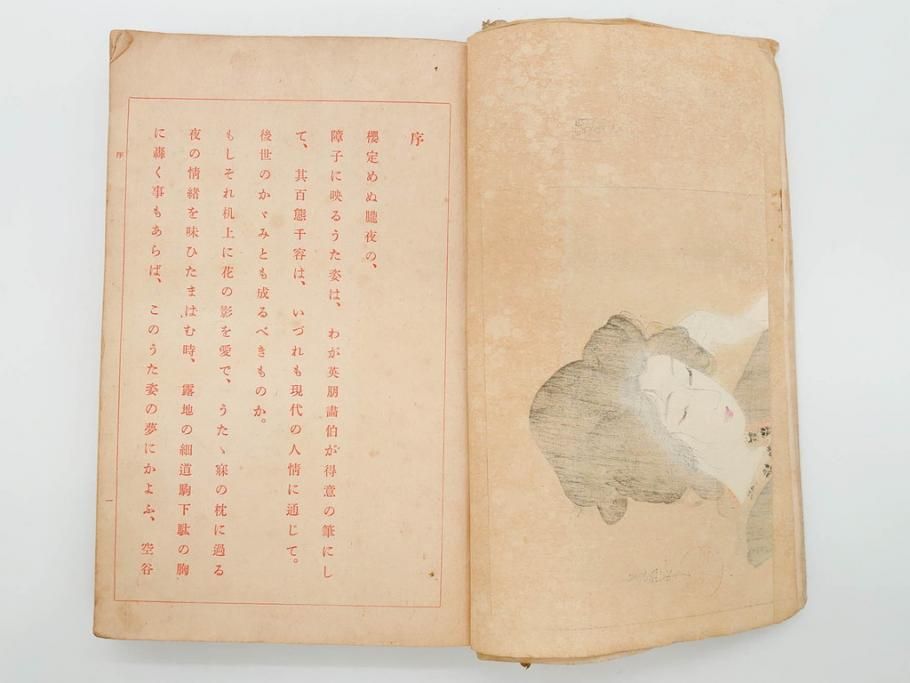 序
櫻定めぬ朧夜の、
障子に映るうた姿は、わが英朋畵伯が得意の筆にし
て、其百態千容は、いづれも現代の人情に通じて。
後世のかゞみとも成るべきものか。
もしそれ机上に花の影を愛で、うたゝ寐の枕に過る
夜の情緒を味ひたまはむ時、露地の細道駒下駄の胸
に轟く事もあらば、このうた姿の夢にかよふ、空谷
序
一